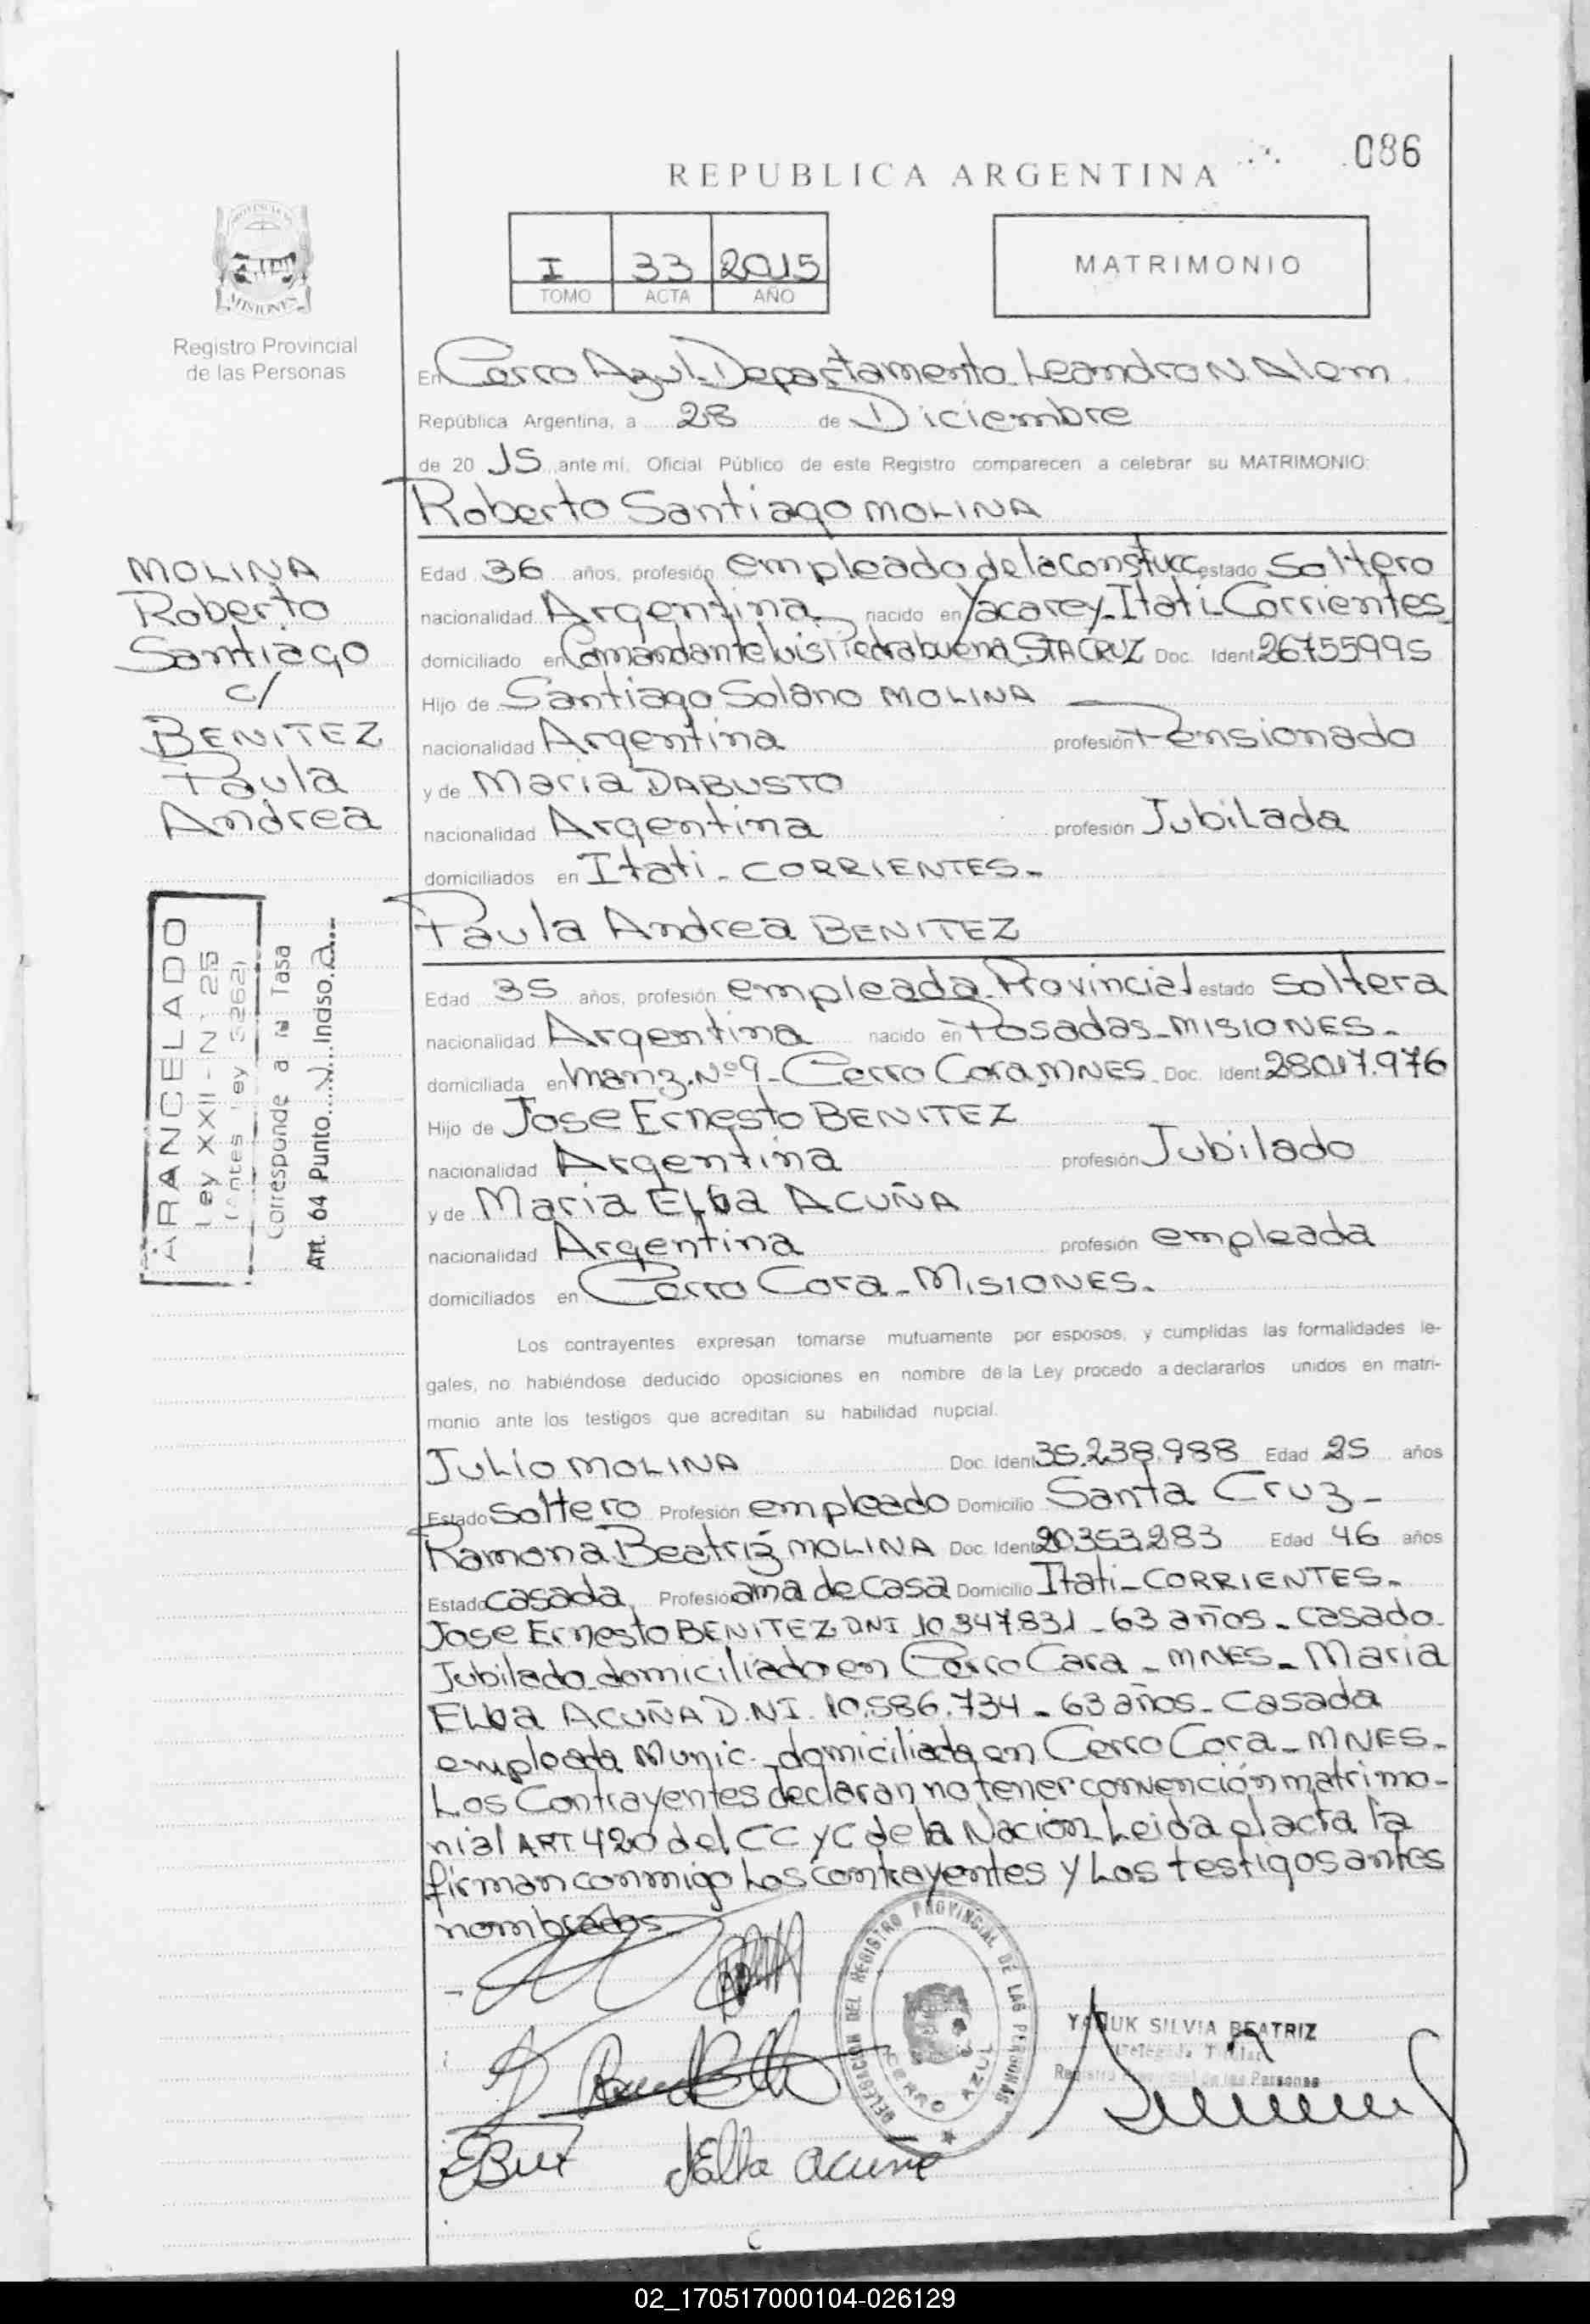 086
REPUBLICA ARGENTINA
PROVINCIA
MISIONES
Registro Provincial
de las Personas
I 33 2015
TOMO ACTA AÑO
MATRIMONIO
En Cerro Azul-Departamento Leandro N. Alem
República Argentina, a 28 de Diciembre
de 20 15 ante mí, Oficial Público de este Registro comparecen a celebrar su MATRIMONIO:
Roberto Santiago MOLINA
MOLINA
Roberto
Santiago
c/
BENITEZ
Paula
Andrea
Edad 36 años, profesión empleado de la construcc estado Soltero
nacionalidad Argentina nacido en Yacarey-Itati-Corrientes
domiciliado en Comandante Luis Piedrabuena STA CRUZ Doc. Ident 26755995
Hijo de Santiago Solano MOLINA
nacionalidad Argentina profesión Pensionado
y de Maria DABUSTO
nacionalidad Argentina profesión Jubilada
domiciliados en Itati - CORRIENTES-
Paula Andrea BENITEZ
ARANCELADO
Ley XXII - N° 25
(Antes Ley 3262)
Corresponde a la Tasa
Art. 64 Punto Inciso a
Edad 35 años, profesión empleada Provincial estado Soltera
nacionalidad Argentina nacido en Posadas-MISIONES-
domiciliada en Manz. Nº9-Cerro Cora, MNES. Doc. Ident. 28.017.976
Hijo de Jose Ernesto BENITEZ
nacionalidad Argentina profesión Jubilado
y de Maria Elba ACUÑA
nacionalidad Argentina profesión empleada
domiciliados en Cerro Cora - MISIONES-
Los contrayentes expresan tomarse mutuamente por esposos, y cumplidas las formalidades le-
gales, no habiéndose deducido oposiciones en nombre de la Ley procedo a declararlos unidos en matri-
monio ante los testigos que acreditan su habilidad nupcial.
Julio MOLINA Doc. Ident 35.238.988 Edad 25 años
Estado Soltero Profesión empleado Domicilio Santa Cruz-
Ramona Beatriz MOLINA Doc. Ident 20.353.283 Edad 46 años
Estado casada Profesión ama de Casa Domicilio Itati-CORRIENTES-
Jose Ernesto BENITEZ DNI 10.347.831 - 63 años - casado-
Jubilado domiciliado en Cerro Cora - MNES - Maria
Elba ACUÑA D.NI. 10.586.734 - 63 años - Casada
empleada Munic. domiciliada en Cerro Cora - MNES-
Los Contrayentes declaran no tener convención matrimo-
nial ART. 420 del CC y C de la Nación Leida el acta la
firman conmigo Los contrayentes y Los testigos antes
nombrados.
DELEGACION DEL REGISTRO PROVINCIAL DE LAS PERSONAS
CERRO AZUL
SILVIA BEATRIZ
Delegada Titular
Registro Provincial de las Personas
Elba Acuña
02_170517000104-026129